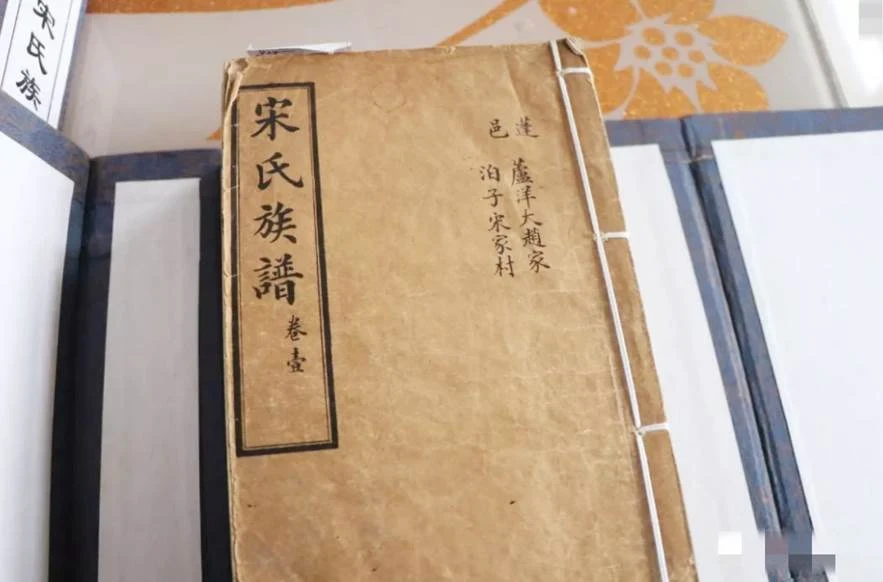 宋氏族
宋氏族譜
卷壹
蓬 蘆洋大趙家
邑 泊子宋家村